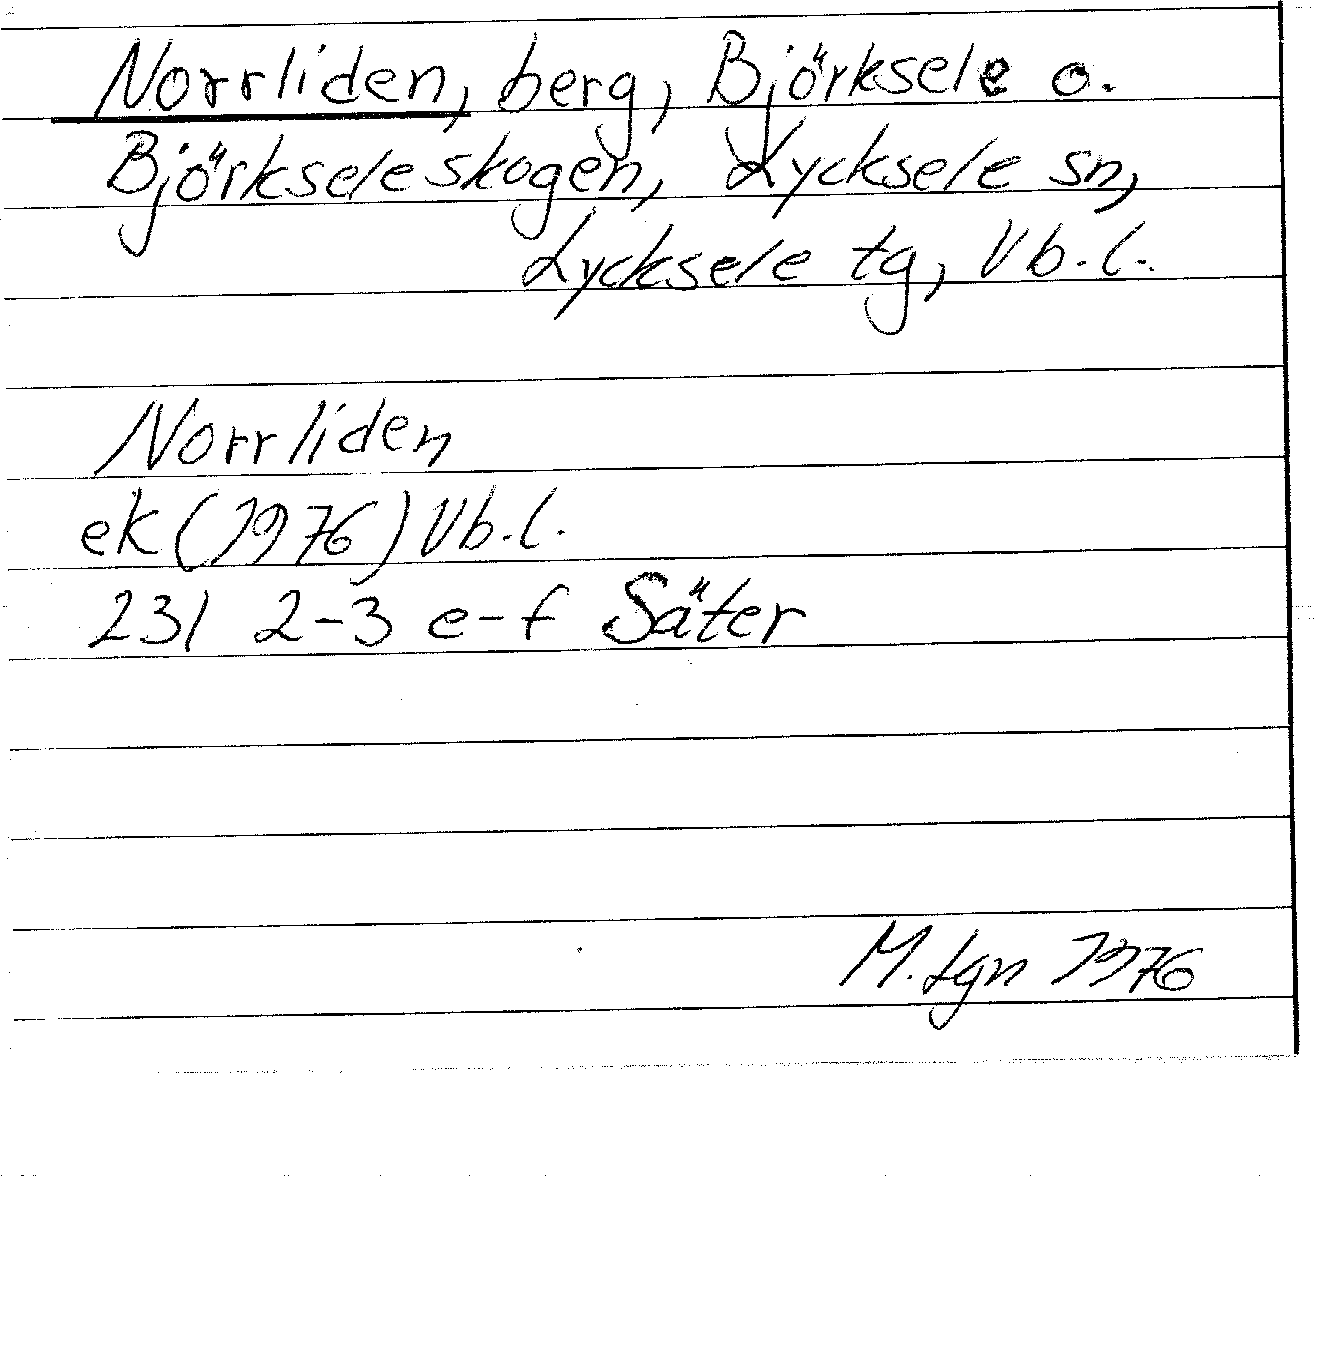 Norrliden, berg, Björksele o.
Björkseleskogen, Lycksele sn,
Lycksele tg, Vb.l.
Norrliden
ek (1976) Vb.l.
23I 2-3 e-f Säter
M. Lgn 1976